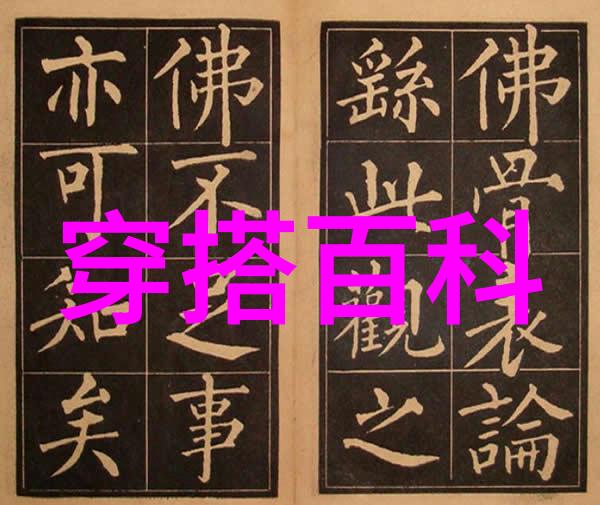 佛骨表論
繇此觀之
佛不足事
亦可知矣
穿搭百科